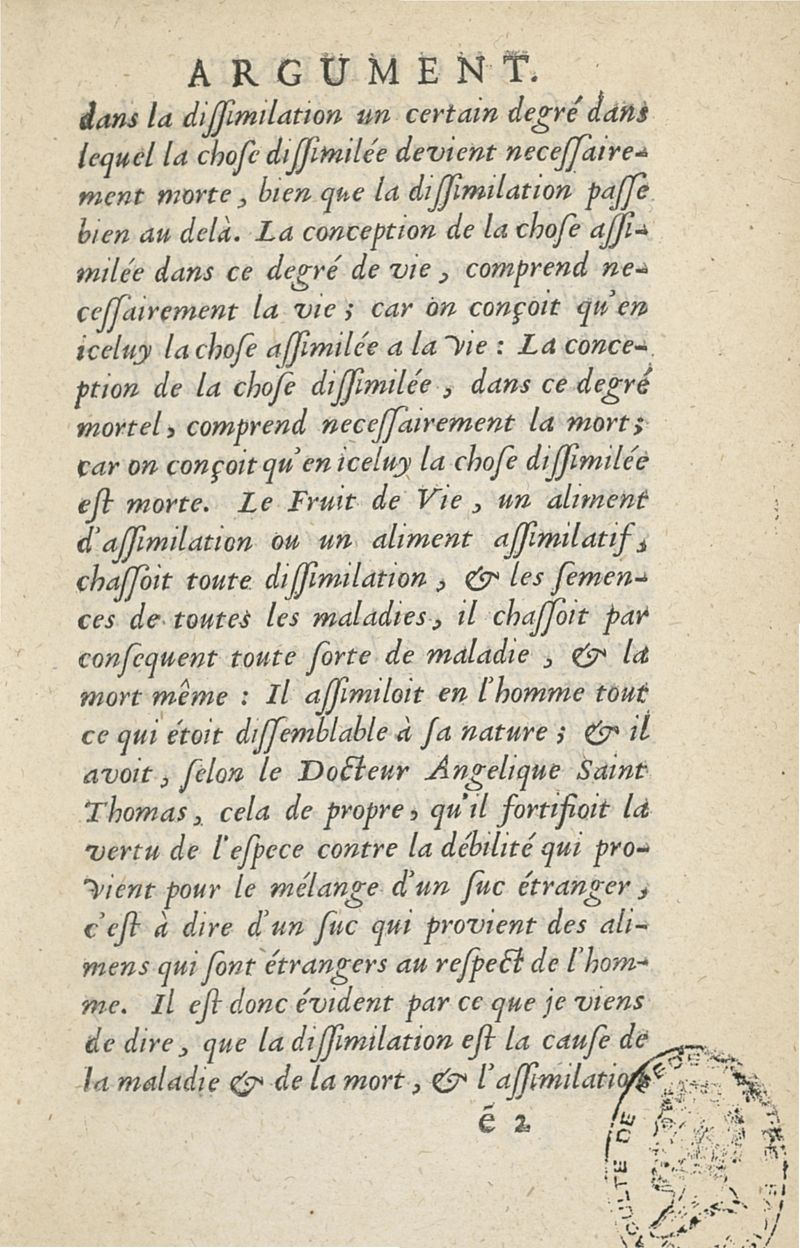 ARGUMENT.
dans la diſſimilation un certain degré dans
lequel la choſe diſſimilée devient neceſſaire-
ment morte, bien que la diſſimilation paſſe
bien au delà. La conception de la choſe aſſi-
milée dans ce degré de vie, comprend ne-
ceſſairement la vie; car on conçoit qu'en
iceluy la choſe aſſimilée a la vie: La conce-
ption de la choſe diſſimilée, dans ce degré
mortel, comprend neceſſairement la mort;
car on conçoit qu'en iceluy la choſe diſſimilée
eſt morte. Le Fruit de Vie, un aliment
d'aſſimilation ou un aliment aſſimilatif,
chaſſoit toute diſſimilation, & les ſemen-
ces de toutes les maladies, il chaſſoit par
conſequent toute ſorte de maladie, & la
mort même: Il aſſimiloit en l'homme tout
ce qui étoit diſſemblable à ſa nature; & il
avoit, ſelon le Docteur Angelique Saint
Thomas, cela de propre, qu'il fortifioit la
vertu de l'eſpece contre la débilité qui pro-
vient pour le mélange d'un ſuc étranger,
c'eſt à dire d'un ſuc qui provient des ali-
mens qui ſont étrangers au reſpect de l'hom-
me. Il eſt donc évident par ce que je viens
de dire, que la diſſimilation eſt la cauſe de
la maladie & de la mort, & l'aſſimilation
ẽ 2
DE